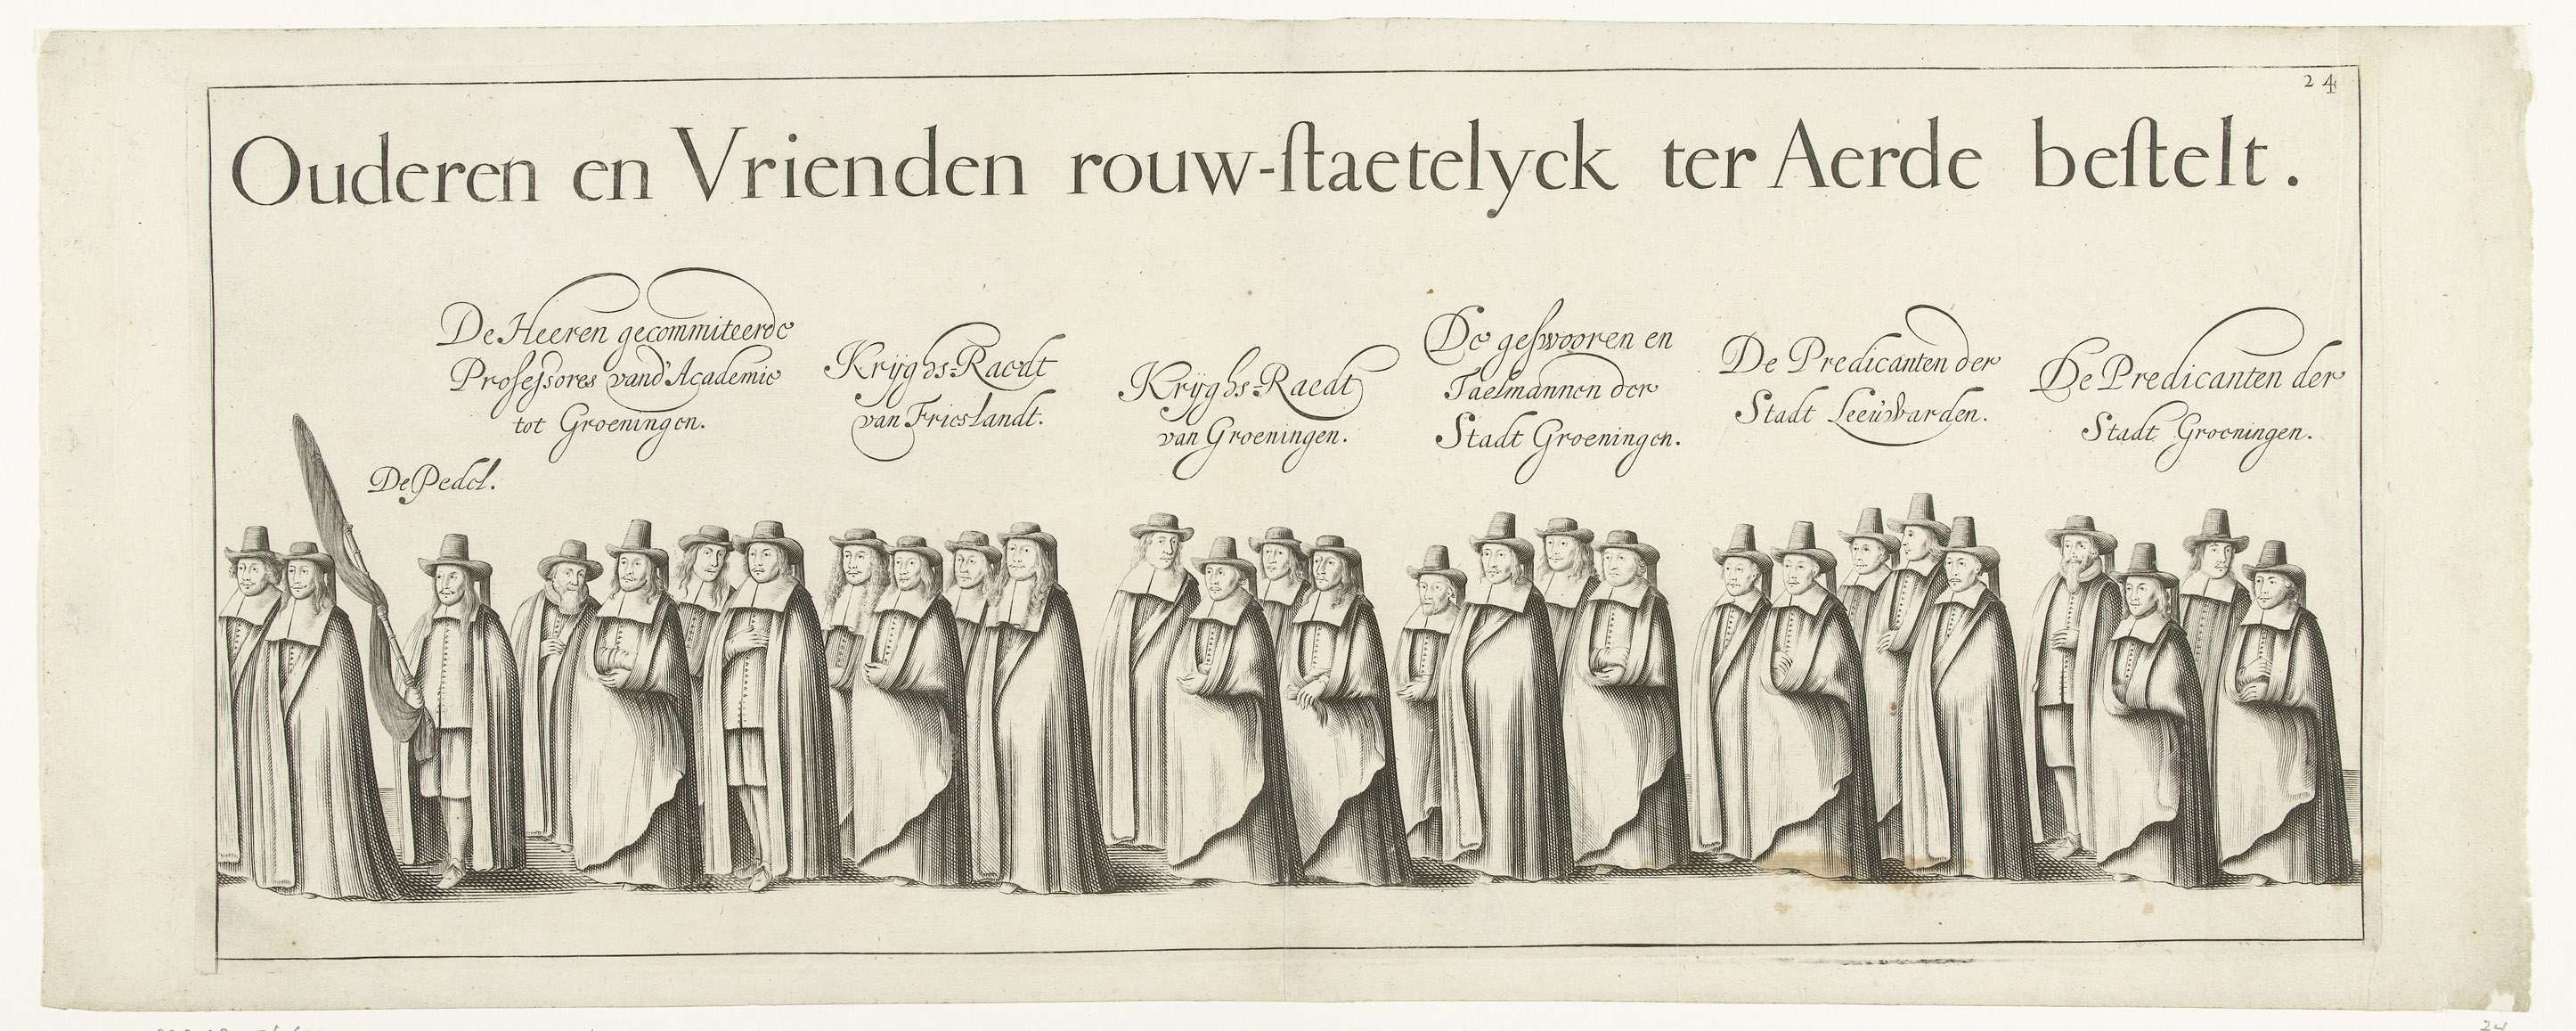 24
Ouderen en Vrienden rouw-ſtaetelyck ter Aerde beſtelt.
De Heeren gecommiteerde
Profeſsores vand'Academie
tot Groeningen.
De Pedel.
Krijghs-Raedt
van Frieslandt.
Krijghs-Raedt
van Groeningen.
De geſwooren en
Taelmannen der
Stadt Groeningen.
De Predicanten der
Stadt Leeuwarden.
De Predicanten der
Stadt Groeningen.
24